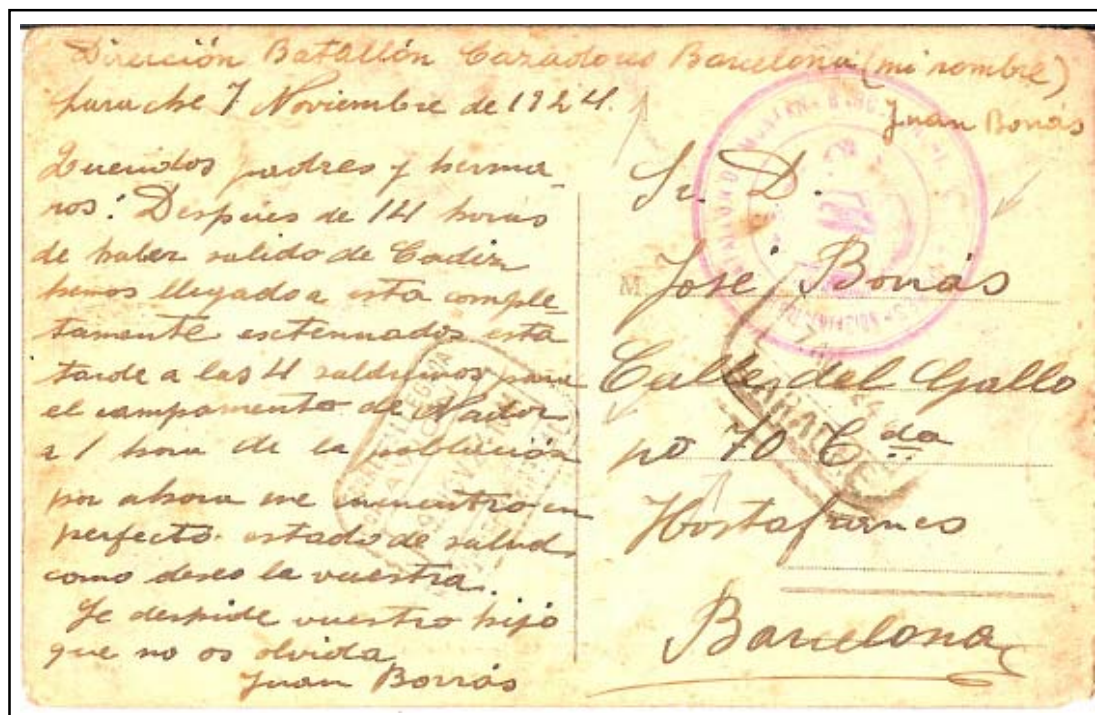 Dirección Batallón Cazadores Barcelona (mi nombre)
Juan Borrás
Larache 7 Noviembre de 1924.
Queridos padres y herma-
nos: Despues de 14 horas
de haber salido de Cadiz
hemos llegado a esta comple-
tamente extennados esta
tarde a las 4 saldremos para
el campamento de Nador
a 1 hora de la población
por ahora me encuentro en
perfecto estado de salud
como deseo la vuestra.
Se despide vuestro hijo
que no os olvida
Juan Borrás
Sr. D.
José Borrás
Calle del Gallo
nº 70 Tda
Hostafranes
Barcelona
LARACHE